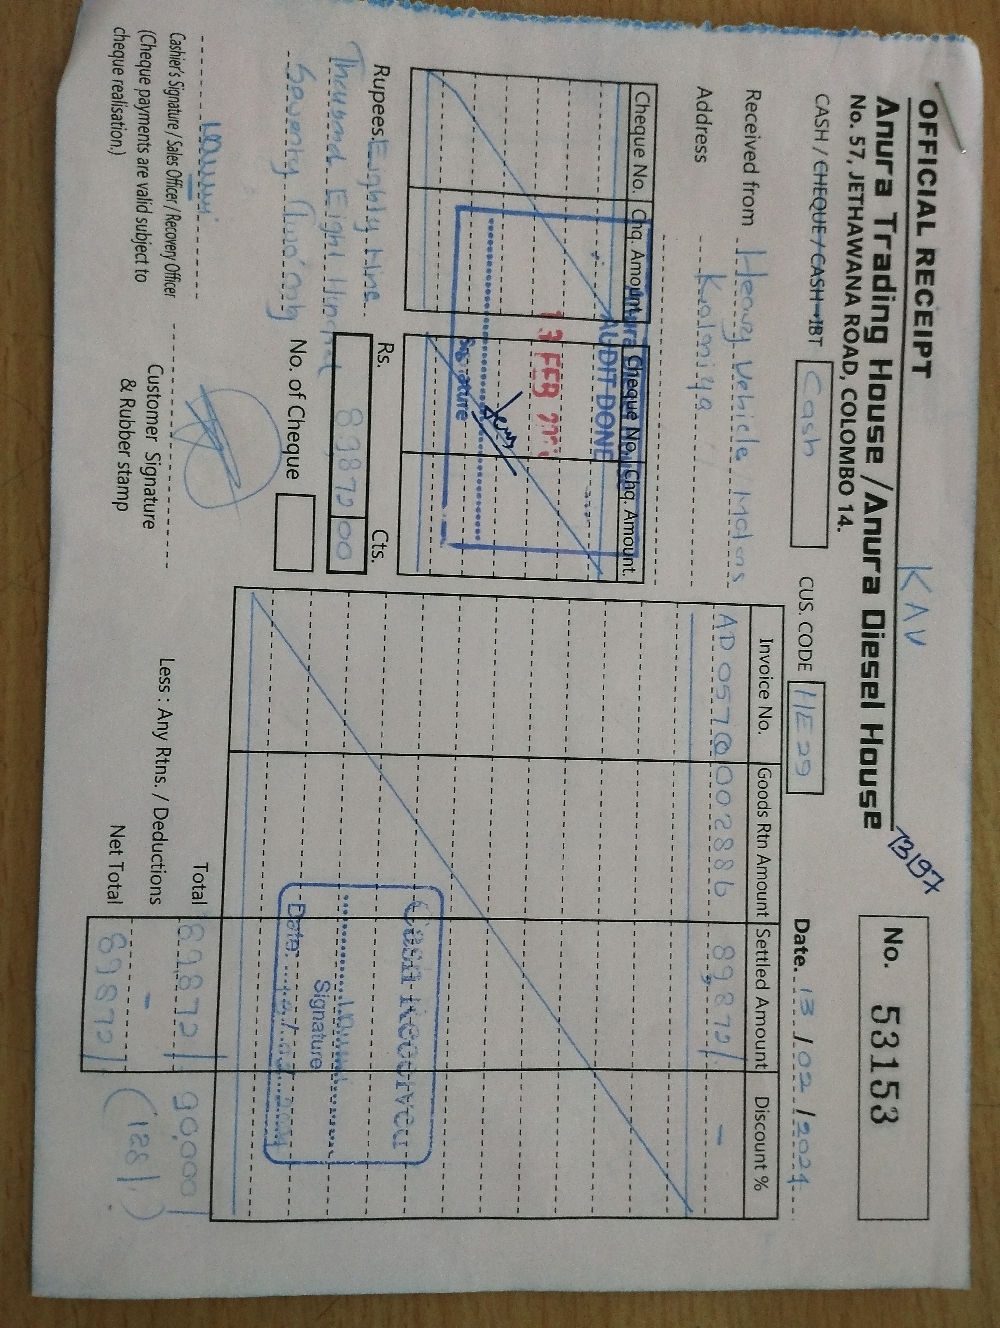 OFFICIAL RECEIPT
KAV
Anura Trading House / Anura Diesel House
No. 57, JETHAWANA ROAD, COLOMBO 14.
B197
No. 53153
CASH / CHEQUE / CASH - IBT Cash
CUS. CODE HE29
Date. 13 / 02 / 2024
Received from Heavy Vehicle / Motors
Address Kalaniya
Cheque No. Chq. Amount Cheque No. Chq. Amount.
AUDIT DONE
13 FEB
Signature
Invoice No. Goods Rtn Amount Settled Amount Discount %
AD057@002886 89,872/ -
Rupees. Eighty Nine
Thousand Eight Hundred
Seventy
Rs. Cts.
89872 00
No. of Cheque
Cash Received
Signature
Date:
Cashier's Signature / Sales Officer / Recovery Officer
(Cheque payments are valid subject to
cheque realisation.)
Customer Signature
& Rubber stamp
Total 89,872/ 90,000/
Less : Any Rtns. / Deductions - (128/)
Net Total 89872/